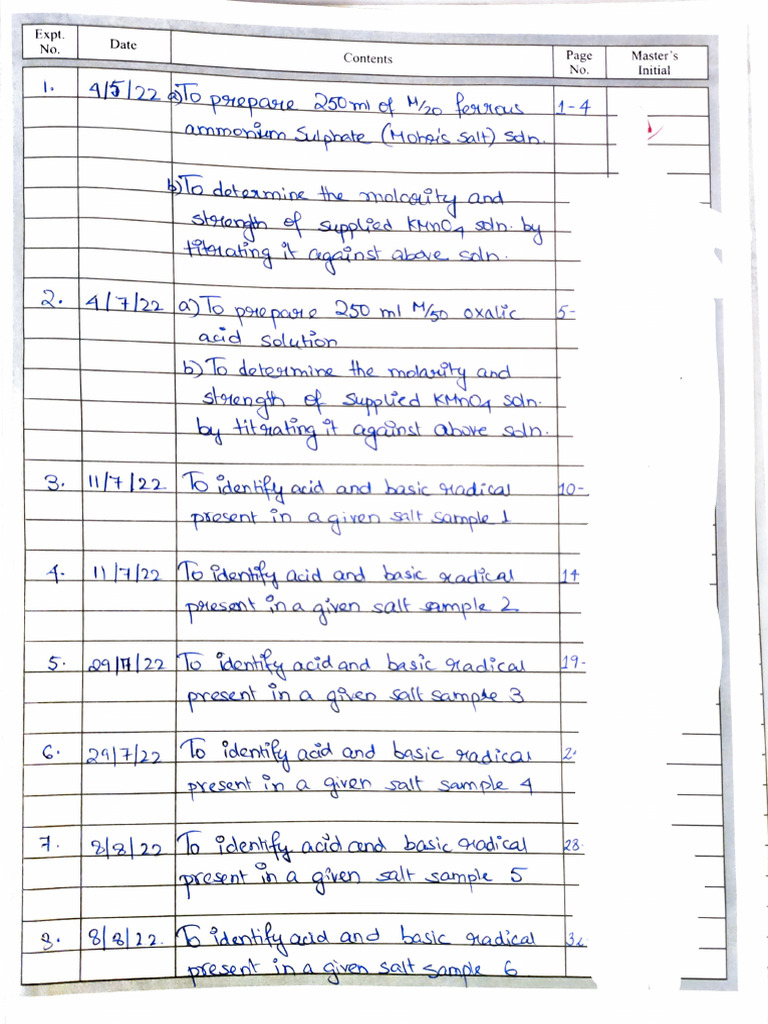 Expt. No. Date Contents Page No. Master's Initial
1. 4/5/22 a) To prepare 250 ml of M/20 ferrous 1-4
ammonium Sulphate (Mohr's salt) soln.
b) To determine the molarity and
strength of supplied KMnO4 soln. by
titrating it against above soln.
2. 4/7/22 a) To prepare 250 ml M/50 oxalic 5-
acid solution
b) To determine the molarity and
strength of supplied KMnO4 soln.
by titrating it against above soln.
3. 11/7/22 To identify acid and basic radical 10-
present in a given salt sample 1
4. 11/7/22 To identify acid and basic radical 14
present in a given salt sample 2
5. 29/7/22 To identify acid and basic radical 19-
present in a given salt sample 3
6. 29/7/22 To identify acid and basic radical
present in a given salt sample 4
7. 8/8/22 To identify acid and basic radical 28-
present in a given salt sample 5
8. 8/8/22 To identify acid and basic radical
present in a given salt sample 6